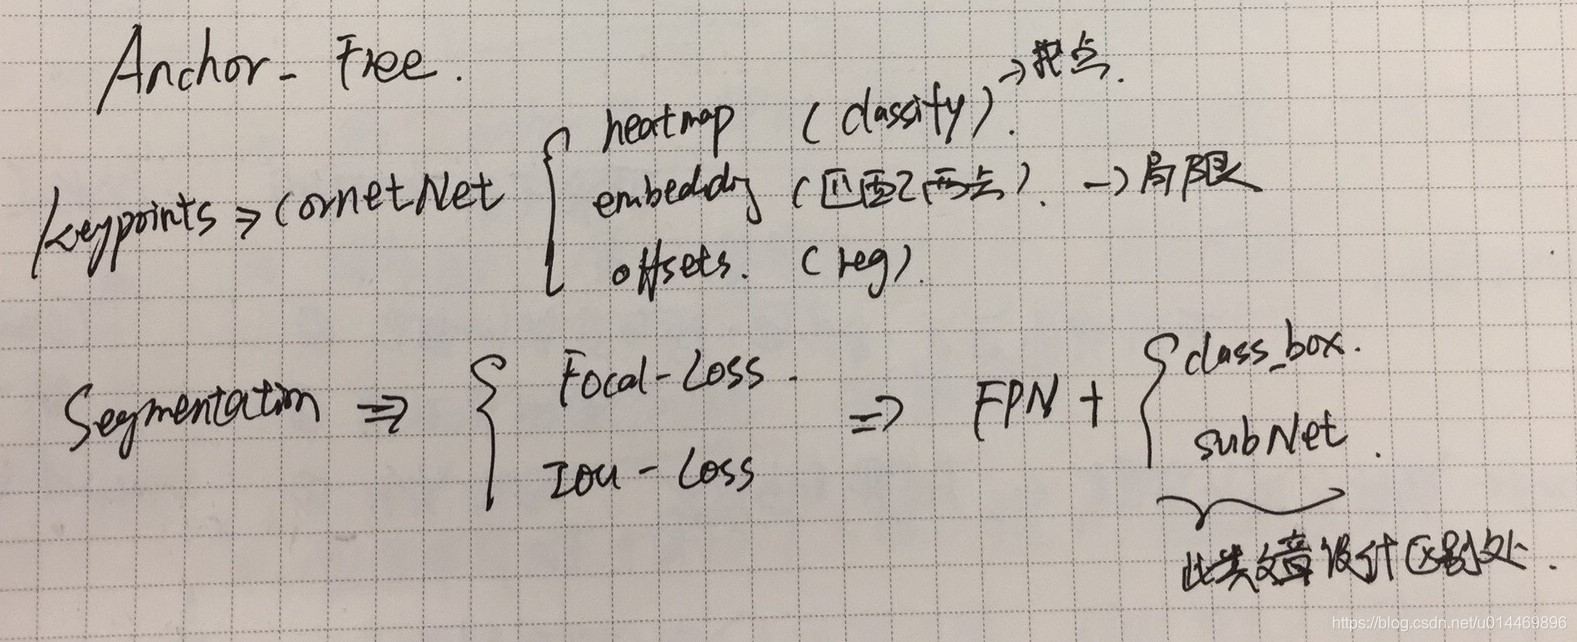 Anchor- Free.
keypoints ⇒ CornetNet { heatmap (classify). → 找点.
embedding (匹配两点). → 局限
offsets. (reg).
Segmentation ⇒ { Focal-Loss. ⇒ FPN + { class_box.
IOU - Loss subNet.
此类文章设计区别处.
https://blog.csdn.net/u014469896